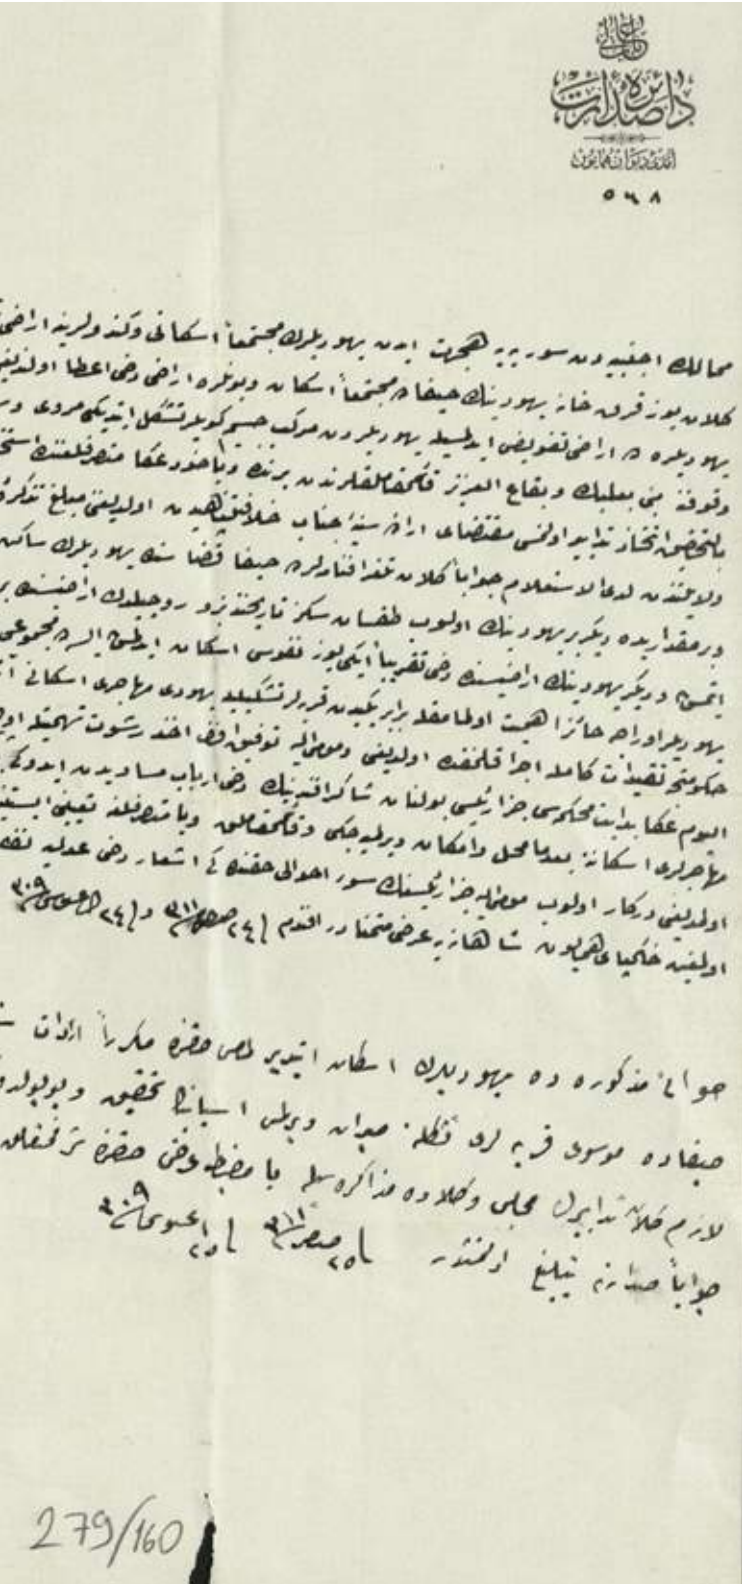 باب عالی
دائرهٔ صدارت
آمدی دیوان همایون
٥٦٨
ممالك اجنبیه دن سوریه یه هجرت ایدن یهودیلرك مجتمعاً اسکانی وکندولرینه اراضی
کلان یوز قرق خانه یهودینك حیفاده مجتمعاً اسکان وبونلره اراضی دخی اعطا اولندیغی
یهودیلره ده اراضی تفویض ایدلمسیله یهودیلردن مرکب جسیم کویلر تشکل ایتدیکی مروی
وقوفنه مبنی بعلبك وبقاع العزیز قائممقاملقلرندن برینه ویاخود عکا متصرفلغنه
بالتحقیق اتخاذ تدابیر اولنمسی مقتضای ارادهٔ سنیهٔ جناب خلافتپناهیدن اولدیغی مبلغ تذکرهٔ
ولایتندن لدی الاستعلام جواباً کلان تلغرافنامه لرده حیفا قضاسنه یهودیلرك ساکن
وبر مقدار یده دیکر بر یهودینك اولوب طقسان سکز تاریخنده
ایتمش ودیکر یهودینك اراضیسنه دخی تقریباً ایکی یوز نفوس اسکان ایدلمش ایسه ده مجموعی
یهودیلر اوراجه حائز اهمیت اولمامقله برابر یکیدن قریه لر تشکیلیله یهودی مهاجری اسکانی
حکومتجه تقیدات کامله اجرا قلنمقده اولدیغی ومومی الیه توفیق افندی اخذ رشوت تهمتیله
الیوم عکا بدایت محکمه سی جزا رئیسی بولنان شاکر افندینك دخی ارباب مساویدن ایدوکی
مهاجرلری اسکاننه بعدما محل وامکان ویرلمیه جکی وقائممقاملق ویا متصرفلغه تعیینی
اولدیغی درکار اولوب مومی الیه جزا رئیسنك سوء احوالی حقنده کی اشعار دخی عدلیه
اولمغین خاکپای همایون شاهانه یه عرضی متمنادر افندم فی ٢٤ صفر ٣١١ و فی ٢٤ اغستوس ٣٠٩
حوالئ مذکوره ده یهودیلرك اسکان ایتدیرلمامسی حقنده مکرراً ارادات
حیفاده موسوی قریه لری تشکیلنه میدان ویرلمسی اسبابنك تحقیقی وبو یولده
لازم کلان تدابیرك مجلس وکلاده مذاکره سیله با مضبطه عرضی حقنده شرفتعلق
جواباً صدارته تبلیغ اولنمشدر فی ٢٥ صفر ٣١١ فی ٢٥ اغستوس ٣٠٩
279/160